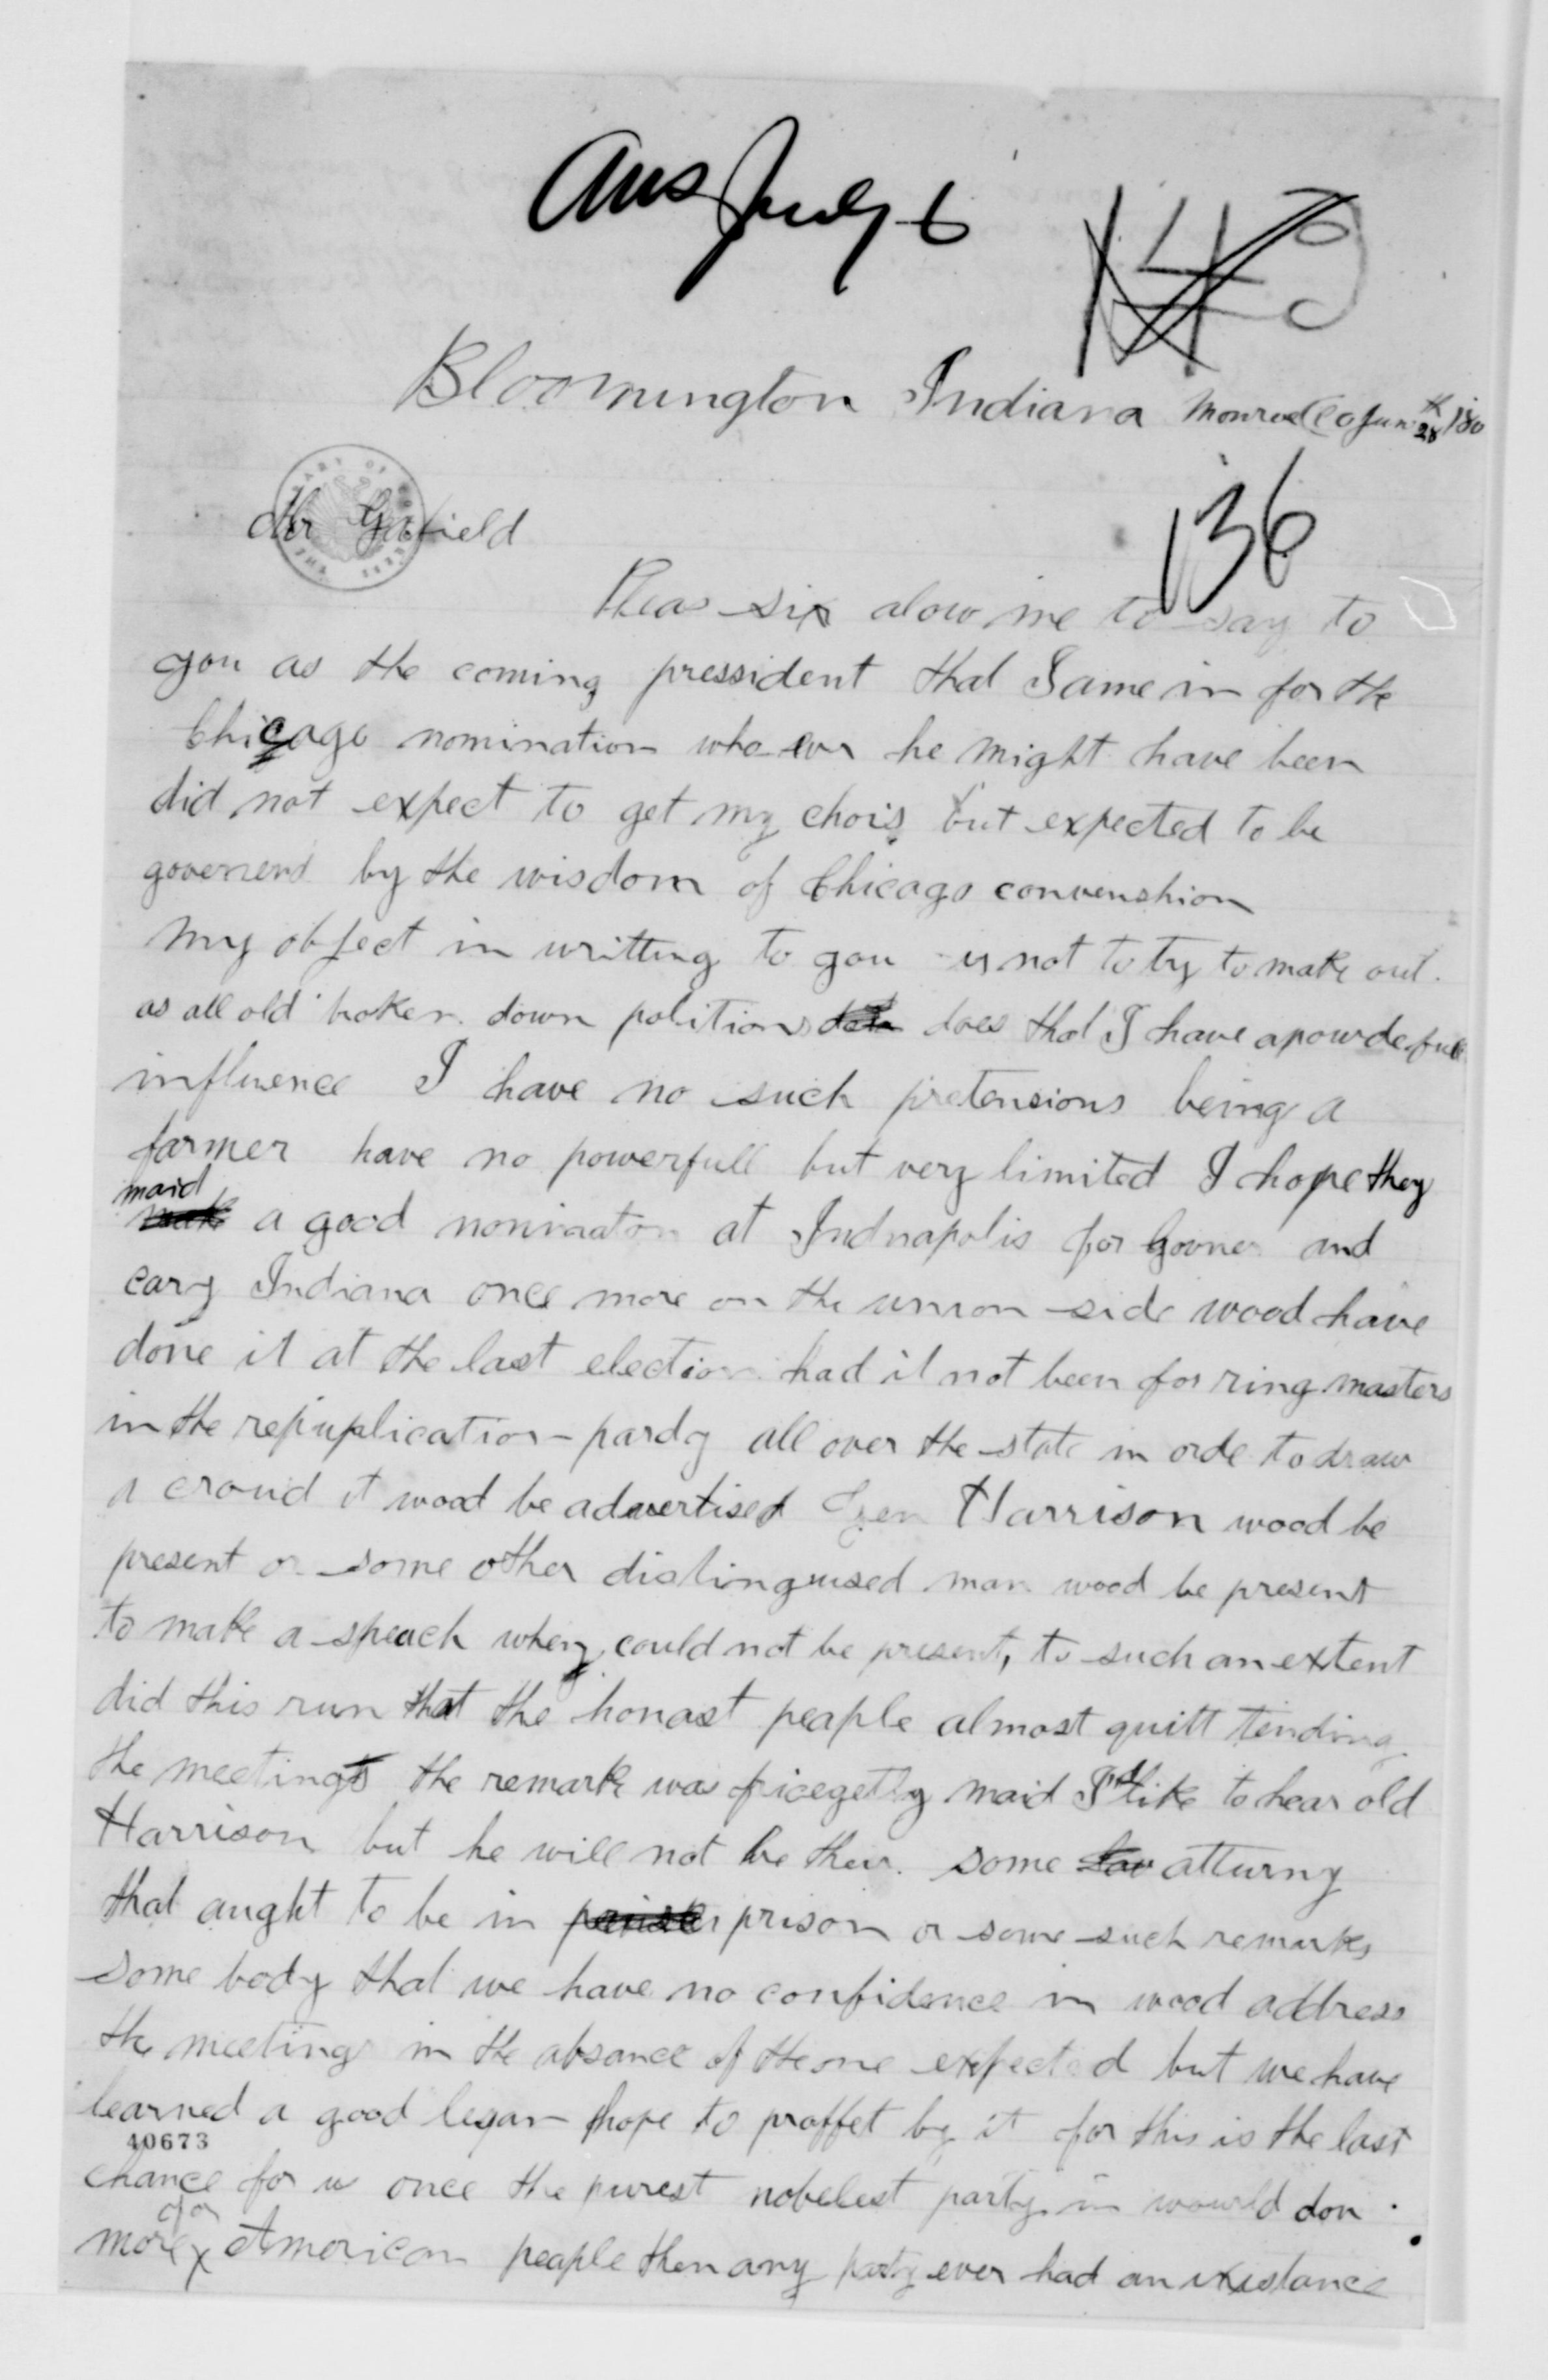 Ans July 6
149
Bloomington Indiana Monroe Co Jun 28th /80
136
Mr Garfield
Pleas sir alow me to say to
you as the coming pressident that I ame in for the
Chicago nomination who ever he might have been
did not expect to get my chois but expected to be
governend by the wisdom of Chicago convenshion
my object in writting to you is not to try to make out
as all old broken down politions does that I have a powderfull
influence I have no such pretensions being a
farmer have no powerfull but very limited I hope they
maid
make a good nominaton at Indnapolis for Governer and
cary Indiana once more on the union side wood have
done it at the last election had it not been for ring masters
in the repuplication pardy all over the state in orde to draw
a croud it wood be advertised Gen Harrison wood be
present or some other distingused man wood be present
to make a speach when could not be present, to such an extent
did this run that the honast peaple almost quitt tending
the meetings the remark was maid I'd like to hear old
Harrison but he will not be their some law atturny
that aught to be in prison or some such remarks
some body that we have no confidence in wood address
the meeting in the absance of the one expected but we have
learned a good leson hope to proffet by it for this is the last
40673
chance for us once the purest nobelest party in wourld don
for
more x American peaple then any party ever had an existance